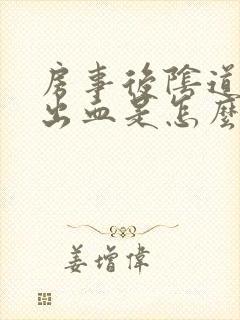 房事後陰道
出血是怎麼
姜增偉